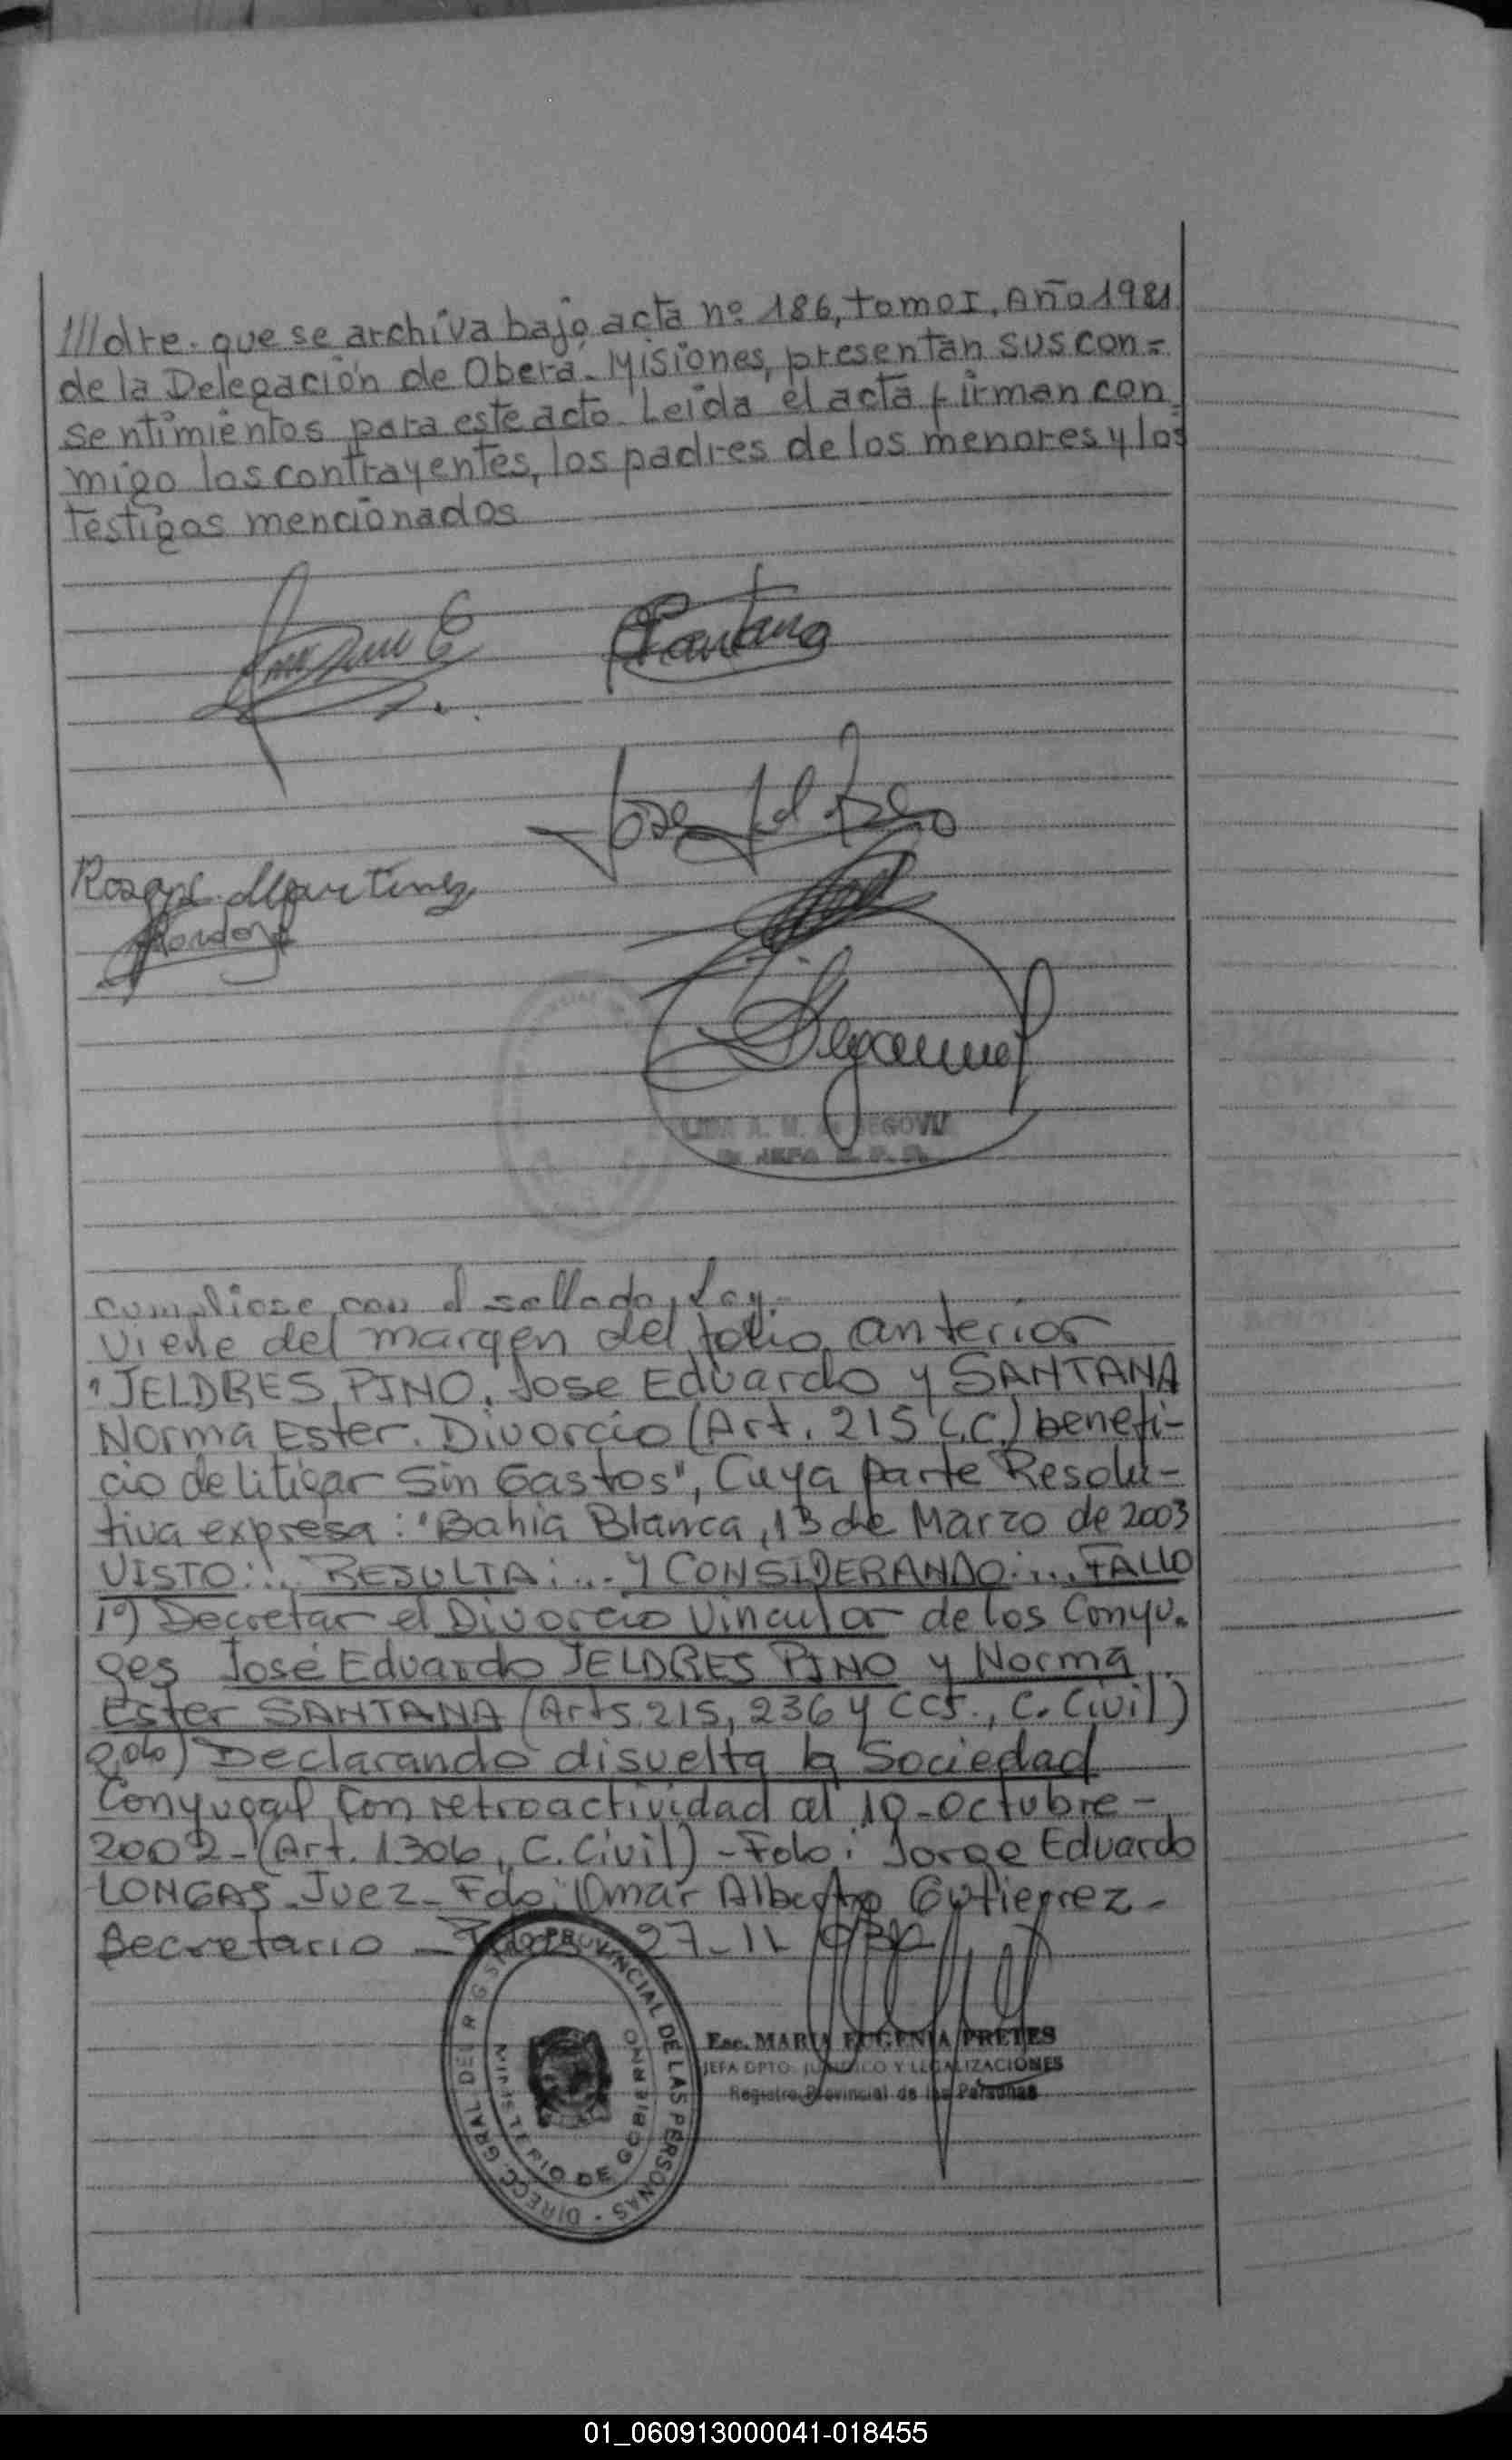 ///dre. que se archiva bajo acta nº 186, tomo I, Año 1981
de la Delegación de Oberá - Misiones, presentan sus con=
sentimientos para este acto. Leida el acta firman con=
migo los contrayentes, los padres de los menores y los
testigos mencionados
Santana
Rosa Martinez
SEGOVIA
JEFA R. P. P.
cumpliose con el sellado, Ley.-
Viene del margen del folio anterior
"JELDRES PINO, Jose Eduardo y SANTANA
Norma Ester. Divorcio (Art. 215 C.C.) benefi-
cio de litigar Sin Gastos", Cuya parte Resolu-
tiva expresa: "Bahia Blanca, 13 de Marzo de 2003
VISTO:... RESULTA:... Y CONSIDERANDO:... FALLO
1º) Decretar el Divorcio Vincular de los Conyu-
ges José Eduardo JELDRES PINO y Norma
Ester SANTANA (Arts. 215, 236 y CCS., C. Civil)
2do) Declarando disuelta la Sociedad
Conyugal Con retroactividad al 10-Octubre-
2002-(Art. 1306, C. Civil) - Fdo: Jorge Eduardo
LONGAS-Juez-Fdo: Omar Alberto Gutierrez-
Secretario - 27-11
DIRECC. GRAL DEL REGISTRO PROVINCIAL DE LAS PERSONAS
MINISTERIO DE GOBIERNO
Esc. MARIA EUGENIA PRETES
JEFA DPTO. JURIDICO Y LEGALIZACIONES
Registro Provincial de las Personas
01_060913000041-018455